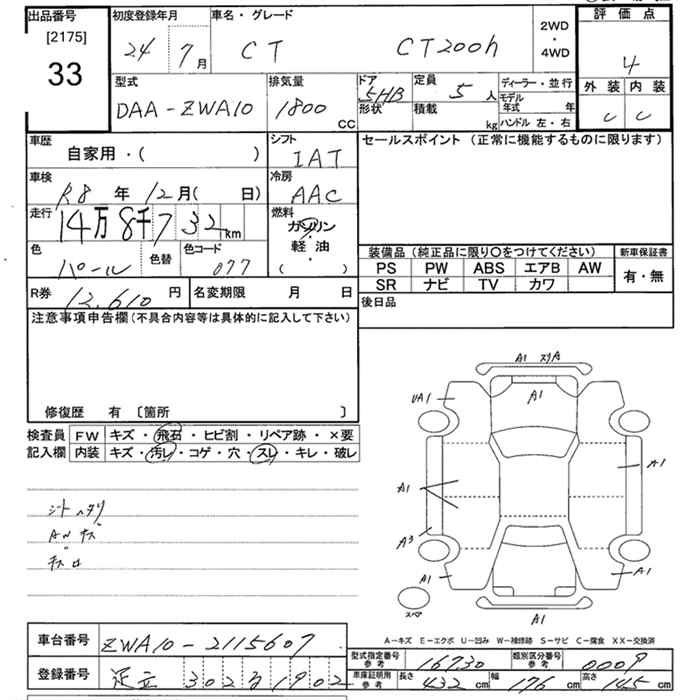 出品番号 初度登録年月 車名・グレード 2WD・4WD 評価点
[2175]
33
24 7月 CT CT200h 4
型式 排気量 ドア形状 定員 ディーラー・並行 外装 内装
DAA-ZWA10 1800cc 5HB 5人 モデル年式 年 C C
積載 kg ハンドル 左・右
車歴 シフト セールスポイント(正常に機能するものに限ります)
自家用・( ) IAT
車検 冷房
R8年12月( 日) AAC
走行 燃料
14万8千732km ガソリン
軽油
( )
色 色替 色コード
パール 077
装備品(純正品に限り○をつけてください) 新車保証書
PS PW ABS エアB AW 有・無
SR ナビ TV カワ
R券 12,610円 名変期限 月 日
後日品
注意事項申告欄(不具合内容等は具体的に記入して下さい)
修復歴 有 〔箇所 〕
検査員 FW キズ・飛石・ヒビ割・リペア跡・×要
記入欄 内装 キズ・汚レ・コゲ・穴・スレ・キレ・破レ
シートヘタリ
ANキズ
A1 スリA
UA1
A1
A1
A1
A3
A1
A1
A1
スペア
A-キズ E-エクボ U-凹み W-補修跡 S-サビ C-腐食 XX-交換済
車台番号 ZWA10-2115607
型式指定番号 参考 16730 類別区分番号 参考 0009
登録番号 足立 302 ろ 1902
車庫証明用 参考 長さ 432cm 幅 176cm 高さ 145cm